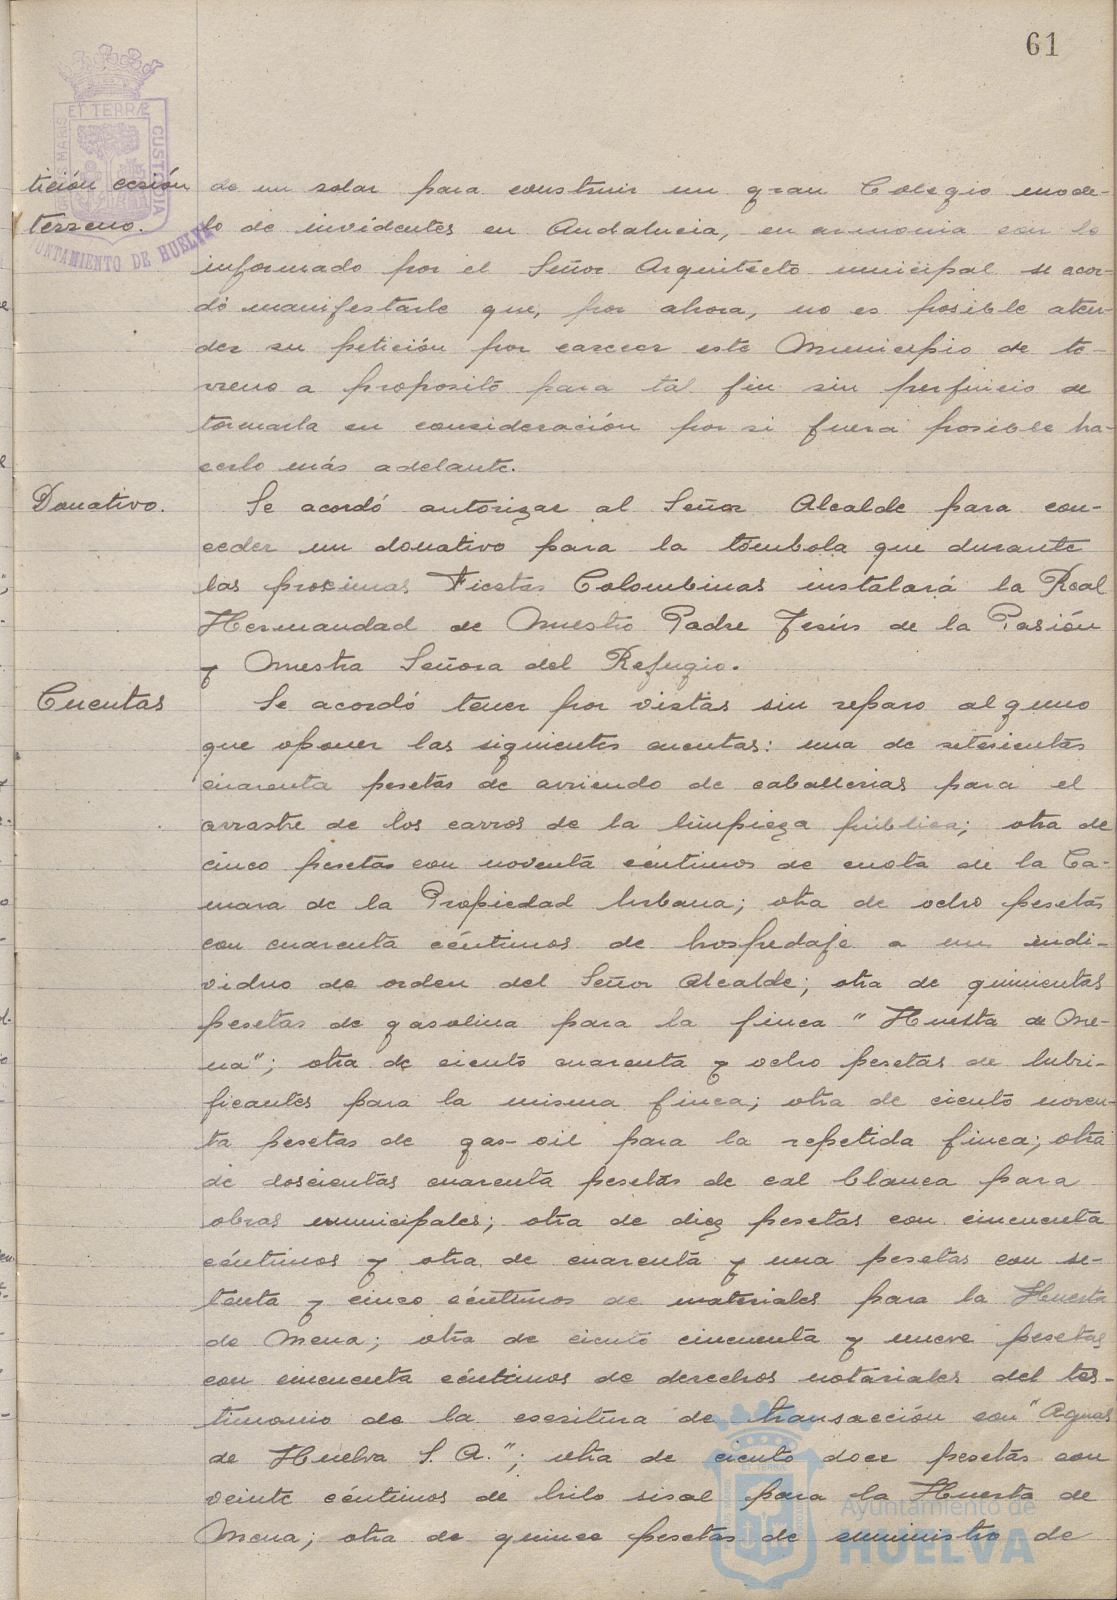 61
PORTUS MARIS ET TERRÆ CUSTODIA
AYUNTAMIENTO DE HUELVA
tición cesión
terreno.
de un solar para construir un gran Colegio mode-
lo de invidentes en Andalucia, en armonia con lo
informado por el Señor Arquitecto municipal se acor-
dó manifestarle que, por ahora, no es posible aten-
der su petición por carecer este Municipio de te-
rreno a proposito para tal fin sin perjuicio de
tomarla en consideración por si fuera posible ha-
cerlo más adelante.
Donativo.
Se acordó autorizar al Señor Alcalde para con-
ceder un donativo para la tómbola que durante
las proximas Fiestas Colombinas instalará la Real
Hermandad de Nuestro Padre Jesús de la Pasión
y Nuestra Señora del Refugio.
Cuentas
Se acordó tener por vistas sin reparo alguno
que oponer las siguientes cuentas: una de setecientas
cuarenta pesetas de arriendo de caballerias para el
arrastre de los carros de la limpieza pública; otra de
cinco pesetas con noventa céntimos de cuota de la Ca-
mara de la Propiedad Urbana; otra de ocho pesetas
con cuarenta céntimos de hospedaje a un indi-
viduo de orden del Señor Alcalde; otra de quinientas
pesetas de gasolina para la finca "Huerta de Me-
na"; otra de ciento cuarenta y ocho pesetas de lubri-
ficantes para la misma finca; otra de ciento noven-
ta pesetas de gas-oil para la repetida finca; otra
de doscientas cuarenta pesetas de cal blanca para
obras municipales; otra de diez pesetas con cincuenta
céntimos y otra de cuarenta y una pesetas con se-
tenta y cinco céntimos de materiales para la Huerta
de Mena; otra de ciento cincuenta y nueve pesetas
con cincuenta céntimos de derechos notariales del tes-
timonio de la escritura de transacción con "Aguas
de Huelva S. A."; otra de ciento doce pesetas con
veinte céntimos de hilo sisal para la Huerta de
Mena; otra de quince pesetas de suministro de
Ayuntamiento de
HUELVA